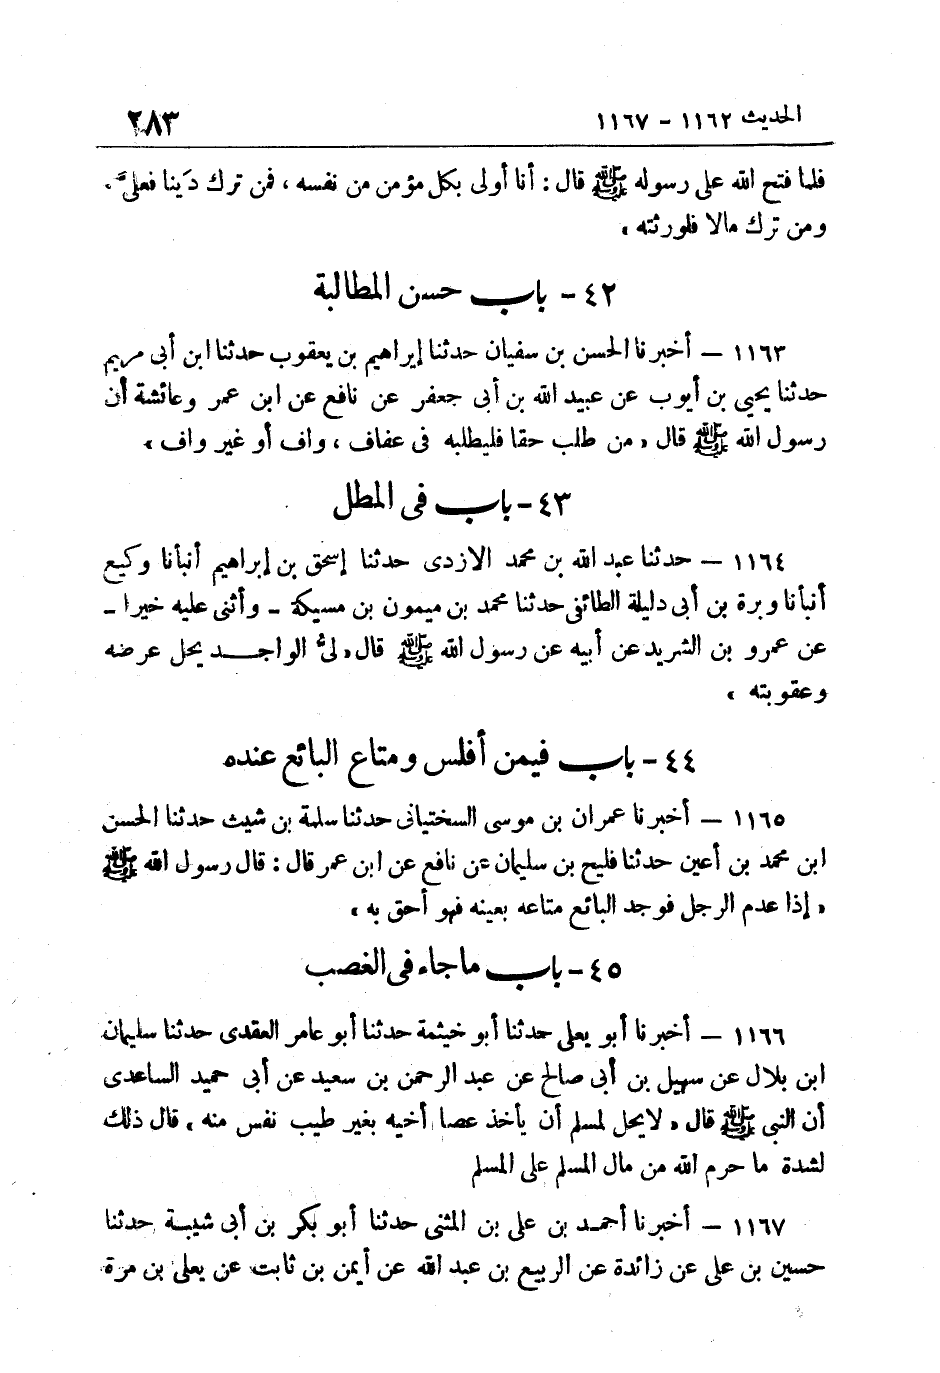 الحديث ١١٦٢ - ١١٦٧
٢٨٣
فلما فتح الله على رسوله ﷺ قال : أنا أولى بكل مؤمن من نفسه ، فمن ترك دَينا فعلىَّ .
ومن ترك مالا فلورثته »
٤٢ - باب حسن المطالبة
١١٦٣ — أخبرنا الحسن بن سفيان حدثنا إبراهيم بن يعقوب حدثنا ابن أبى مريم
حدثنا يحيى بن أيوب عن عبيد الله بن أبى جعفر عن نافع عن ابن عمر وعائشة أن
رسول الله ﷺ قال « من طلب حقا فليطلبه فى عفاف ، واف أو غير واف »
٤٣ - باب فى المطل
١١٦٤ — حدثنا عبد الله بن محمد الازدى حدثنا إسحق بن إبراهيم أنبأنا وكيع
أنبأنا وبرة بن أبى دليلة الطائفى حدثنا محمد بن ميمون بن مسيكة - وأثنى عليه خيرا -
عن عمرو بن الشريد عن أبيه عن رسول الله ﷺ قال « لىُّ الواجد يحل عرضه
وعقوبته »
٤٤ - باب فيمن أفلس ومتاع البائع عنده
١١٦٥ — أخبرنا عمران بن موسى السختيانى حدثنا سلمة بن شيث حدثنا الحسن
ابن محمد بن أعين حدثنا فليح بن سليمان عن نافع عن ابن عمر قال : قال رسول الله ﷺ
« إذا عدم الرجل فوجد البائع متاعه بعينه فهو أحق به »
٤٥ - باب ماجاء فى الغصب
١١٦٦ — أخبرنا أبو يعلى حدثنا أبو خيثمة حدثنا أبو عامر العقدى حدثنا سليمان
ابن بلال عن سهيل بن أبى صالح عن عبد الرحمن بن سعيد عن أبى حميد الساعدى
أن النبى ﷺ قال « لايحل لمسلم أن يأخذ عصا أخيه بغير طيب نفس منه » قال ذلك
لشدة ما حرم الله من مال المسلم على المسلم
١١٦٧ — أخبرنا أحمد بن على بن المثنى حدثنا أبو بكر بن أبى شيبة حدثنا
حسين بن على عن زائدة عن الربيع بن عبد الله عن أيمن بن ثابت عن يعلى بن مرة